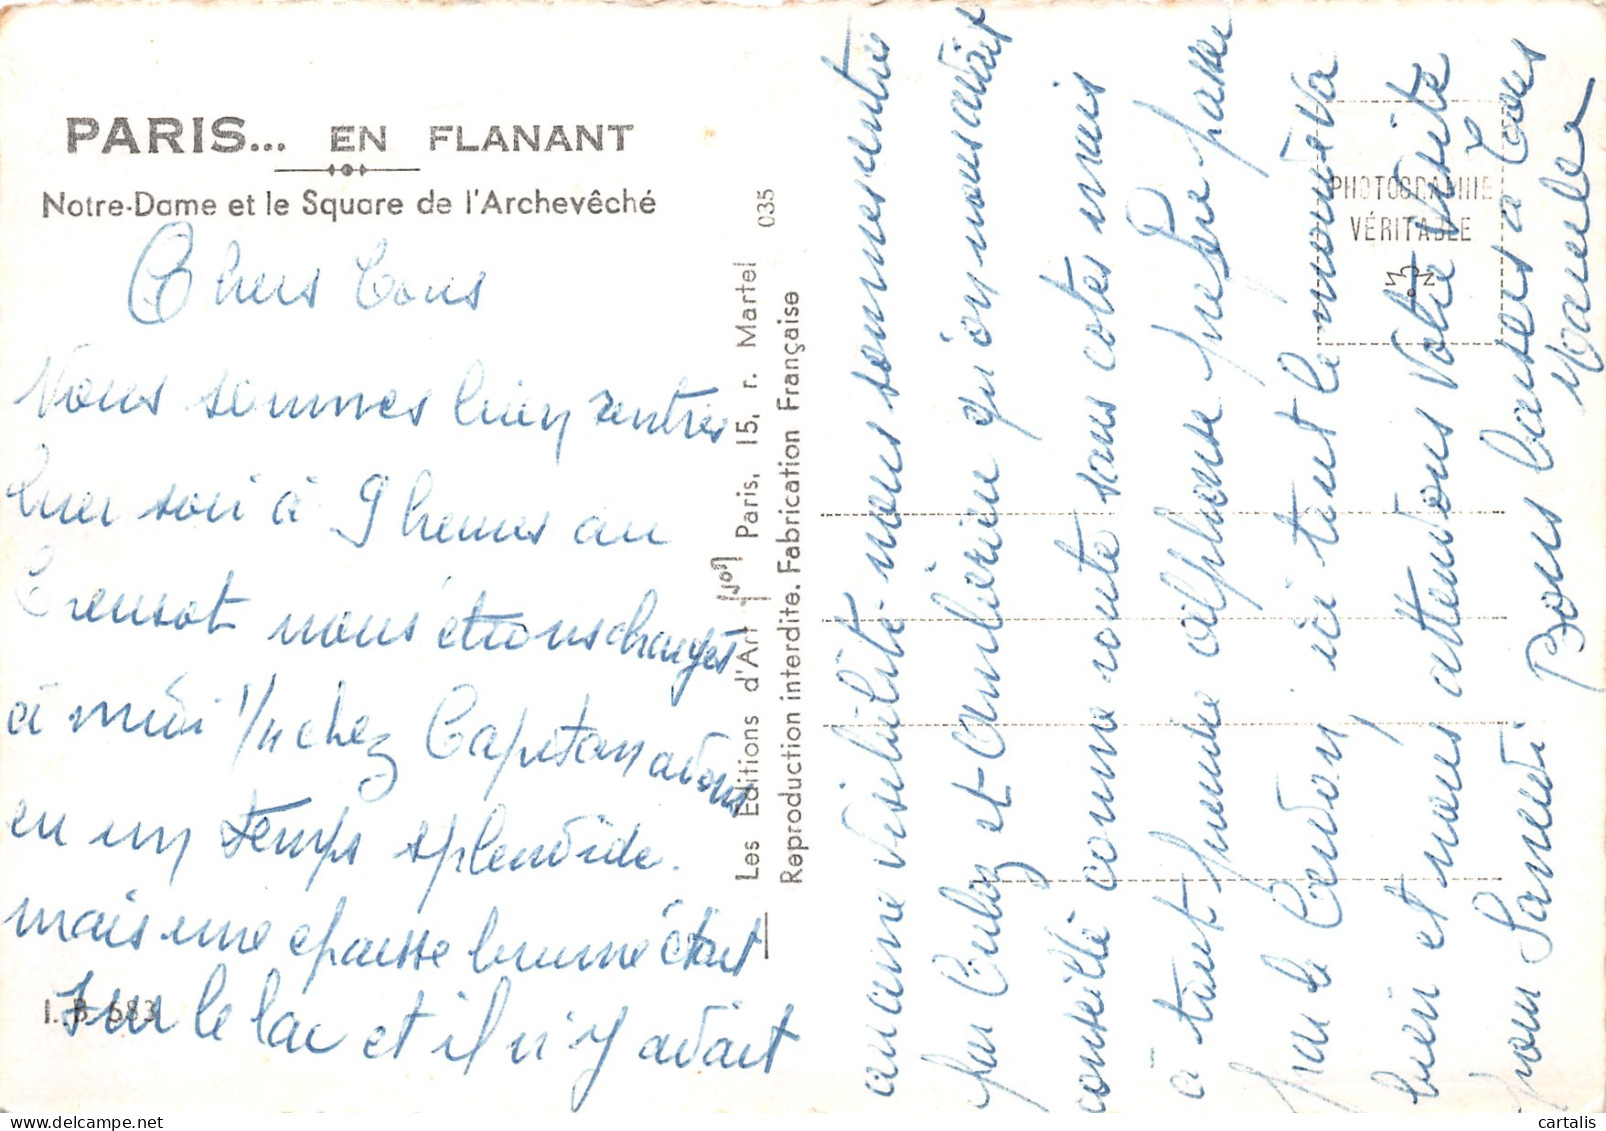 PARIS... EN FLANANT
Notre-Dame et le Square de l'Archevêché
Chers Tous
Nous sommes bien rentrés
hier soir à 9 heures au
Creusot nous étions changés
à midi 1/4 chez Capitan avons
eu un temps splendide.
mais une epaisse brume était
sur le lac et il n'y avait
I. B 683
Les Editions d'Art Yvon Paris, 15, r. Martel 035
Reproduction interdite. Fabrication Française
PHOTOGRAPHIE
VÉRITABLE
aucune visibilité. nous sommes rentrés
par Culoz et Ambérieu qu'on nous avait
conseillé comme route sans cotes mais
à tant prendre alphonse préfère passer
par le Cerdon, ici tout le monde va
bien et nous attendons votre visite
pour Samedi. Bons baisers à tous
Marcelle
cartalis